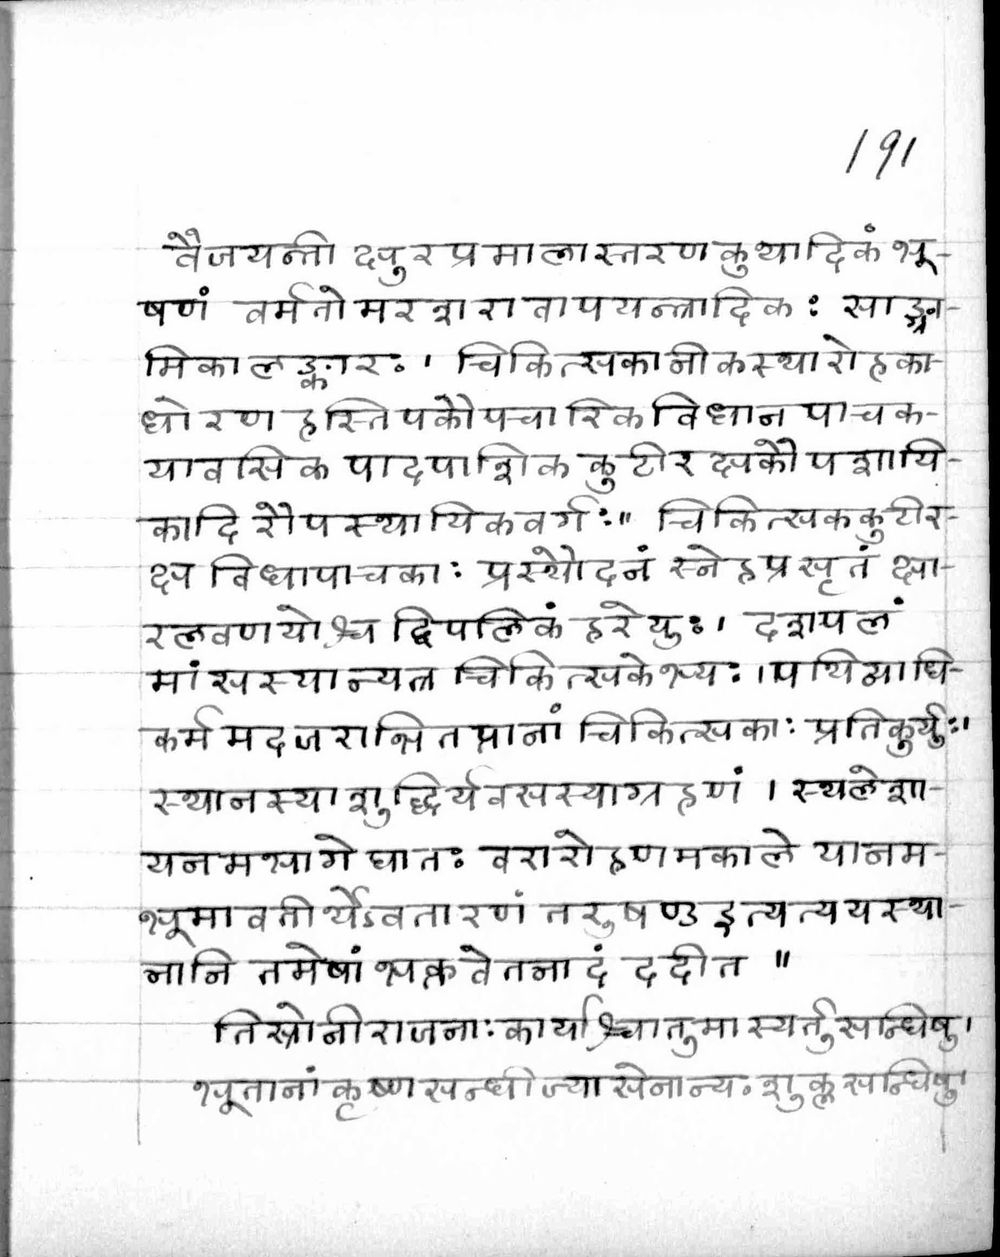 191
वैजयन्ती क्षुरप्रमालास्तरणकुथादिकं भू-
षणं वर्मतोमरशरावापयन्त्रादिकः साङ्ग्रा-
मिकालङ्कारः। चिकित्सकानीकस्थारोहका-
धोरण हस्तिपकौपचारिकविधान पाचक-
यावसिक पादपाशिक कुटीरक्षकौपशायि-
कादि रौपस्थायिकवर्गः॥ चिकित्सककुटीर-
क्ष विधापाचकाः प्रस्थौदनं स्नेहप्रसृतं क्षा-
रलवणयोश्च द्विपलिकं हरेयुः। दशपलं
मांसस्यान्यत्र चिकित्सकेभ्यः। पथिव्याधि-
कर्ममदजराभितप्तानां चिकित्सकाः प्रतिकुर्युः॥
स्थानस्याशुद्धिर्यवसस्याग्रहणं। स्थलेशा-
यनमभागे घातः वरारोहणमकाले यानम-
भूमावतीर्थेऽवतारणं तरुषण्ड इत्यत्ययस्था-
नानि तमेषां भक्तवेतनादं ददीत॥
तिस्रोनीराजनाः कार्याश्चातुर्मास्यर्तुसन्धिषु।
भूतानां कृष्णसन्धीज्या सेनान्यः शुक्लसन्धिषु।